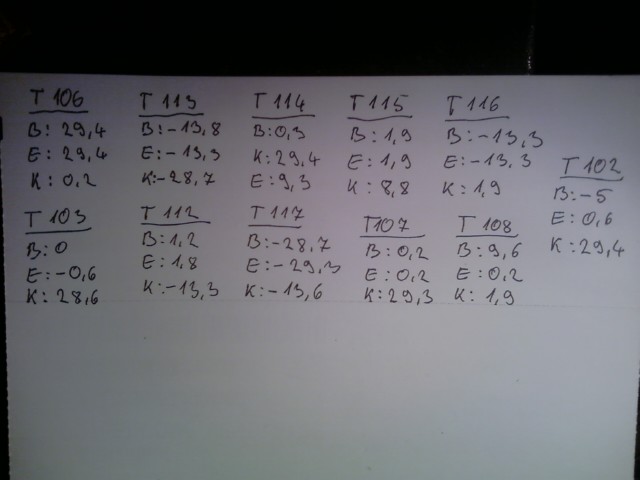 T 106
B: 29,4
E: 29,4
K: 0,2
T 113
B:-13,8
E:-13,3
K:-28,7
T 114
B:0,3
K:29,4
E:9,3
T 115
B: 1,9
E: 1,9
K: 8,8
T 116
B:-13,3
E:-13,3
K: 1,9
T 102
B:-5
E: 0,6
K: 29,4
T 103
B: 0
E:-0,6
K: 28,6
T 112
B:1,2
E:1,8
K:-13,3
T 117
B:-28,7
E:-29,3
K:-13,6
T107
B: 0,2
E: 0,2
K: 29,3
T 108
B: 9,6
E: 0,2
K: 1,9